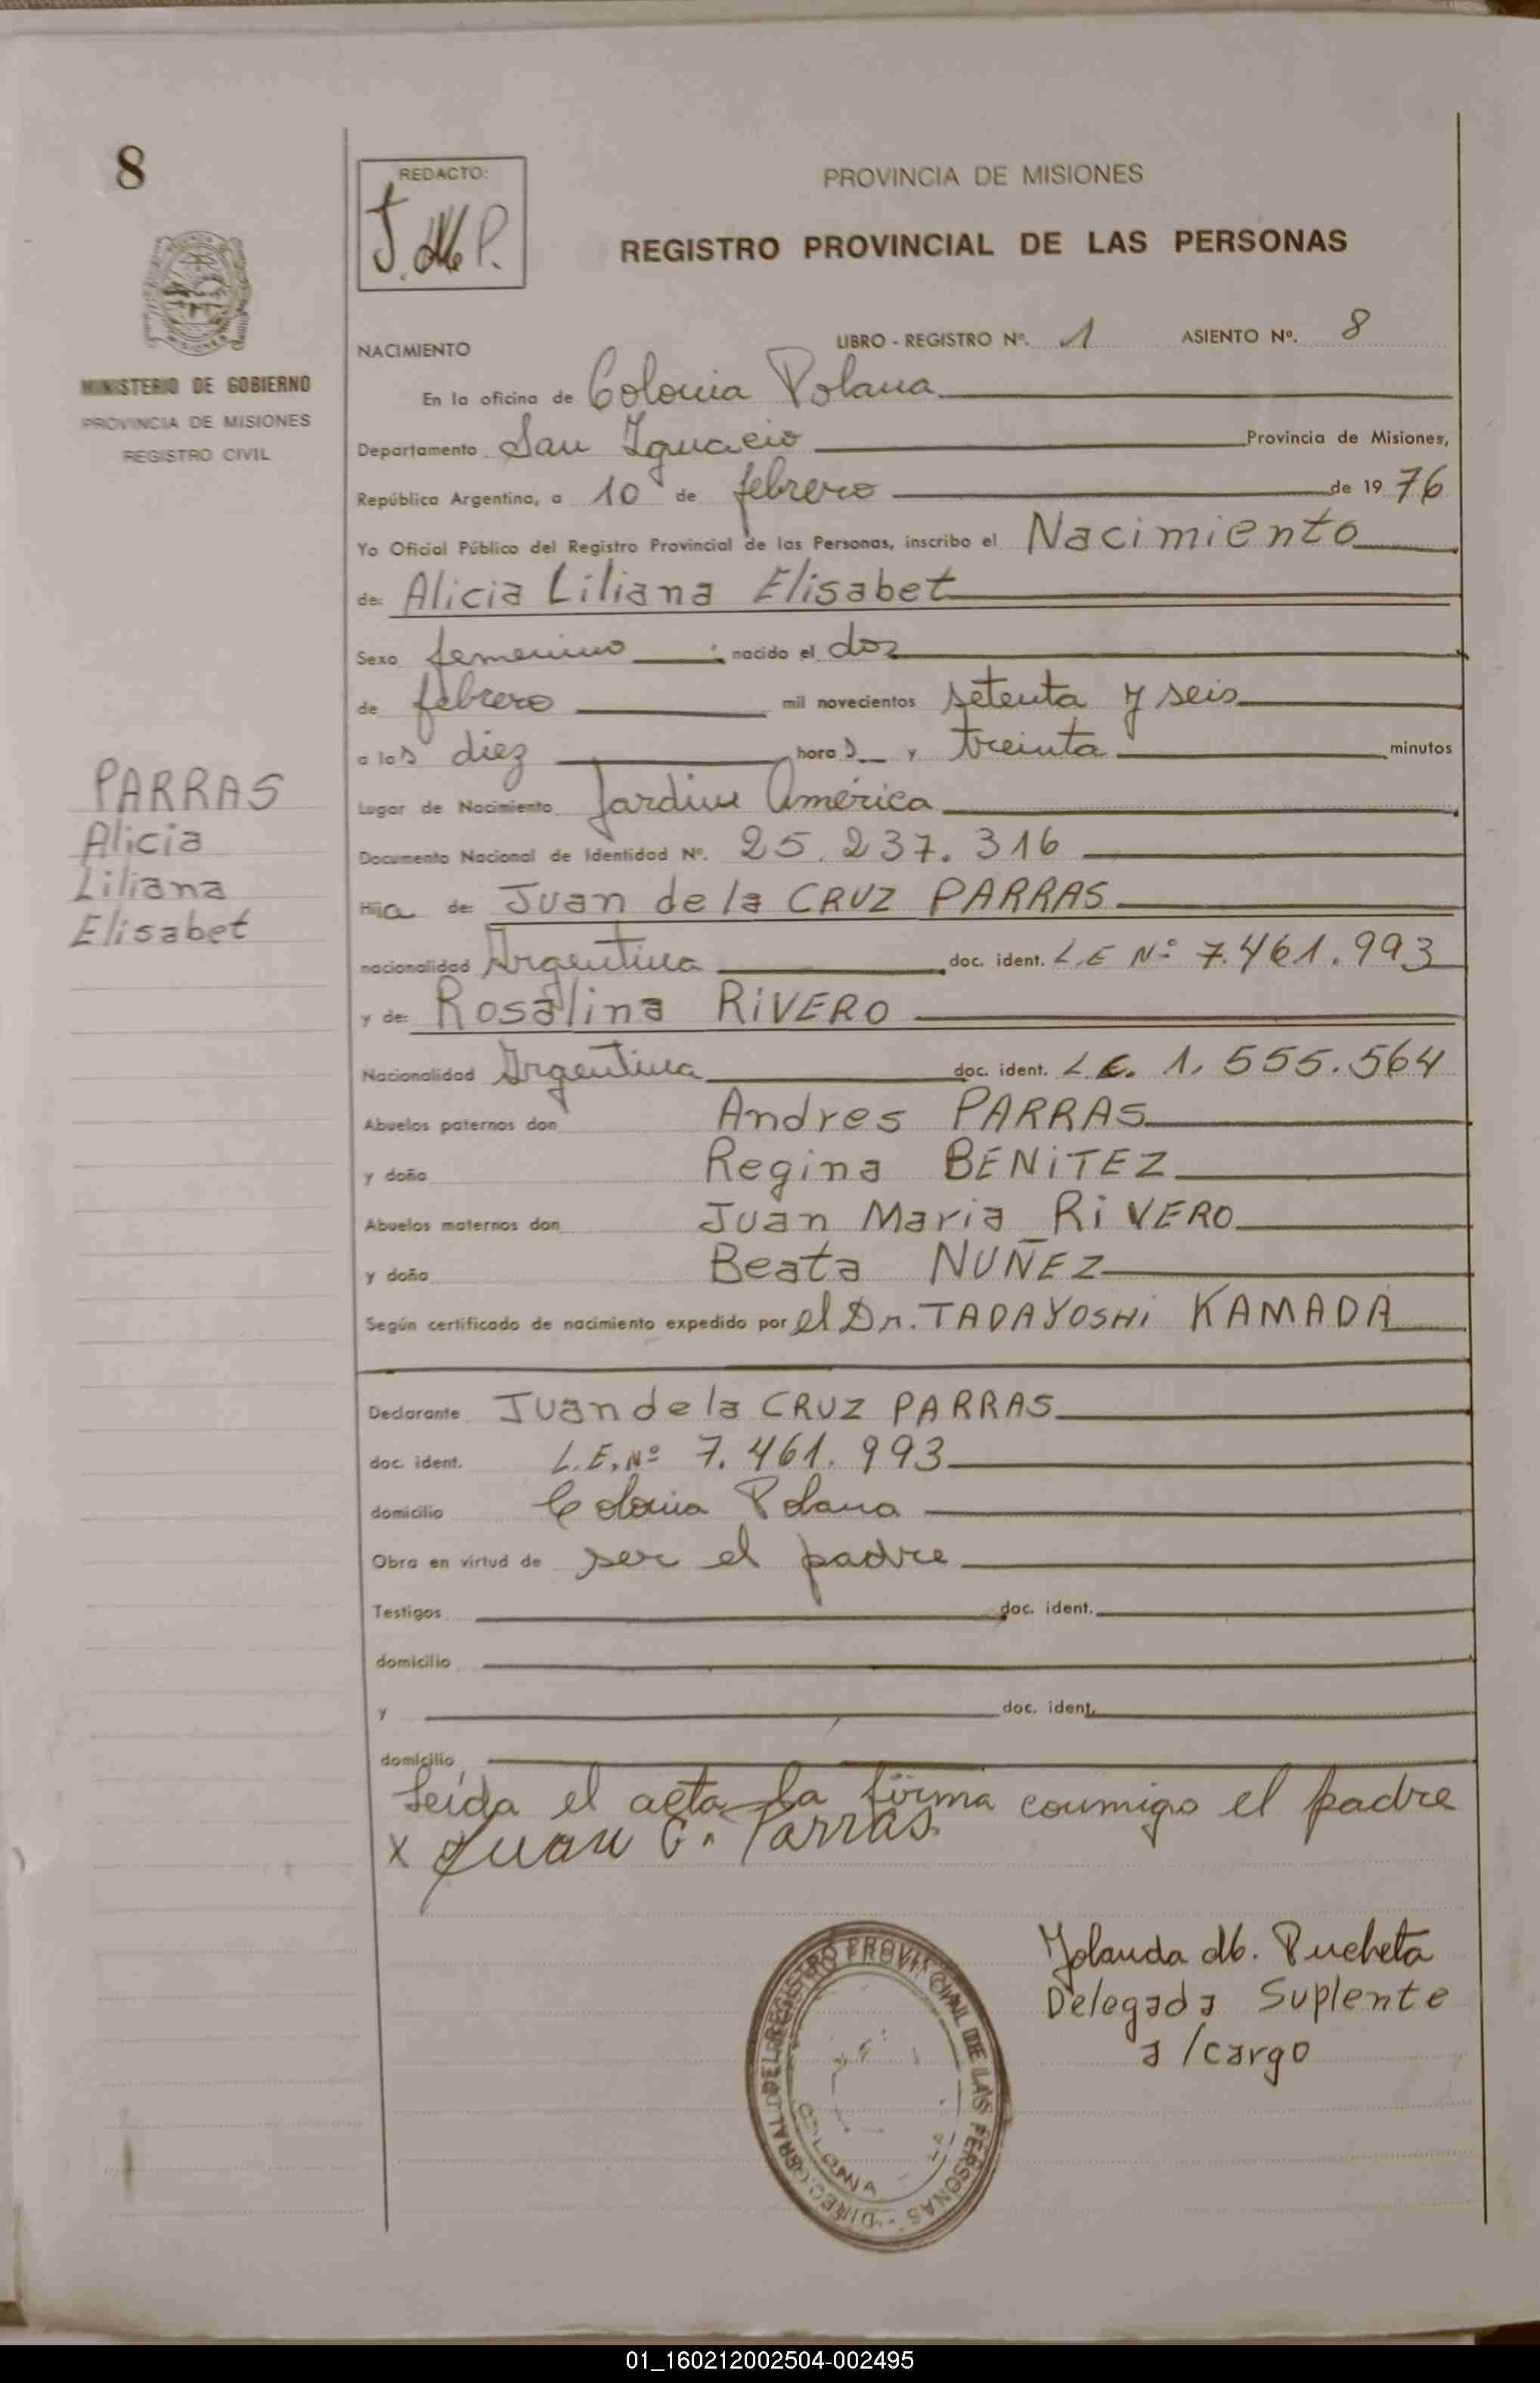 8
REDACTO:
J. M. P.
PROVINCIA DE MISIONES
REGISTRO PROVINCIAL DE LAS PERSONAS
MINISTERIO DE GOBIERNO
PROVINCIA DE MISIONES
REGISTRO CIVIL
NACIMIENTO LIBRO - REGISTRO Nº. 1 ASIENTO Nº. 8
En la oficina de Colonia Polana
Departamento San Ignacio Provincia de Misiones,
República Argentina, a 10 de febrero de 19 76
Yo Oficial Público del Registro Provincial de las Personas, inscribo el Nacimiento
de: Alicia Liliana Elisabet
Sexo femenino ; nacido el dos
de febrero mil novecientos setenta y seis
a las diez horas y treinta minutos
PARRAS
Alicia
Liliana
Elisabet
Lugar de Nacimiento Jardin America
Documento Nacional de Identidad Nº. 25.237.316
Hija de: Juan de la CRUZ PARRAS
nacionalidad Argentina doc. ident. L.E Nº 7.461.993
y de: Rosalina RIVERO
Nacionalidad Argentina doc. ident. L.C. 1.555.564
Abuelos paternos don Andres PARRAS
y doña Regina BENITEZ
Abuelos maternos don Juan Maria RIVERO
y doña Beata NUÑEZ
Según certificado de nacimiento expedido por el Dr. TADAYOSHI KAMADA
Declarante Juan de la CRUZ PARRAS
doc. ident. L.E. Nº 7.461.993
domicilio Colonia Polana
Obra en virtud de ser el padre
Testigos doc. ident.
domicilio
y doc. ident.
domicilio
Leída el acta la firma conmigo el padre
x Juan C. Parras
Yolanda M. Pucheta
Delegada Suplente
a/cargo
DIREC. GRAL. DEL REGISTRO PROVINCIAL DE LAS PERSONAS
COLONIA
01_160212002504-002495